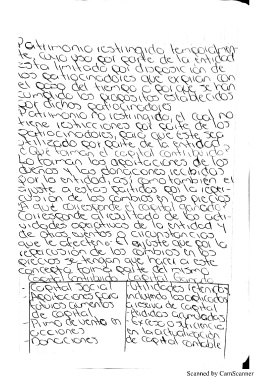 Patrimonio restringido temporalmen-
te cuyo uso por parte de la entidad
esta limitado por disposición de
los patrocinadores que expiran con
el paso del tiempo o porque se han
cumplido los propositos establecidos
por dichos patrocinadores
Patrimonio no restringido, el cual no
tiene restricciones por parte de los
patrocinadores, para que este sea
utilizado por parte de la entidad.
¿Que forman el capital contribuido?
Lo forman las aportaciones de los
dueños y las donaciones recibidas
por la entidad, así como tambien el
ajuste a estas partidas por la reper-
cusión de los cambios en los precios
¿A que corresponde el capital ganado?
Corresponde al resultado de las acti-
vidades operativas de la entidad y
de otros eventos o circunstancias
que le afecten. El ajuste que por la
repercusion de los cambios en los
precios se tengan que hacer a este
concepto forma parte del mismo
Capital social
Aportaciones para
futuros aumentos
de capital
Prima de venta en
acciones
Donaciones
utilidades retenidas
incluyendo las aplicadas
a reservas de capital
Perdidas acumuladas
Exceso o insuficiencia
en la actualización
de capital contable
Scanned by CamScanner